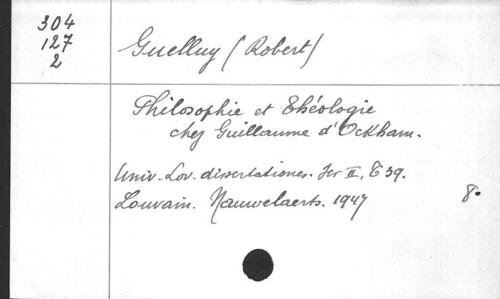 304
127
2
Guelluy (Robert)
Philosophie et Théologie
chez Guillaume d'Ockham.
Univ. Lov. dissertationes. Ser II, T 39.
Louvain. Nauwelaerts. 1947
8.